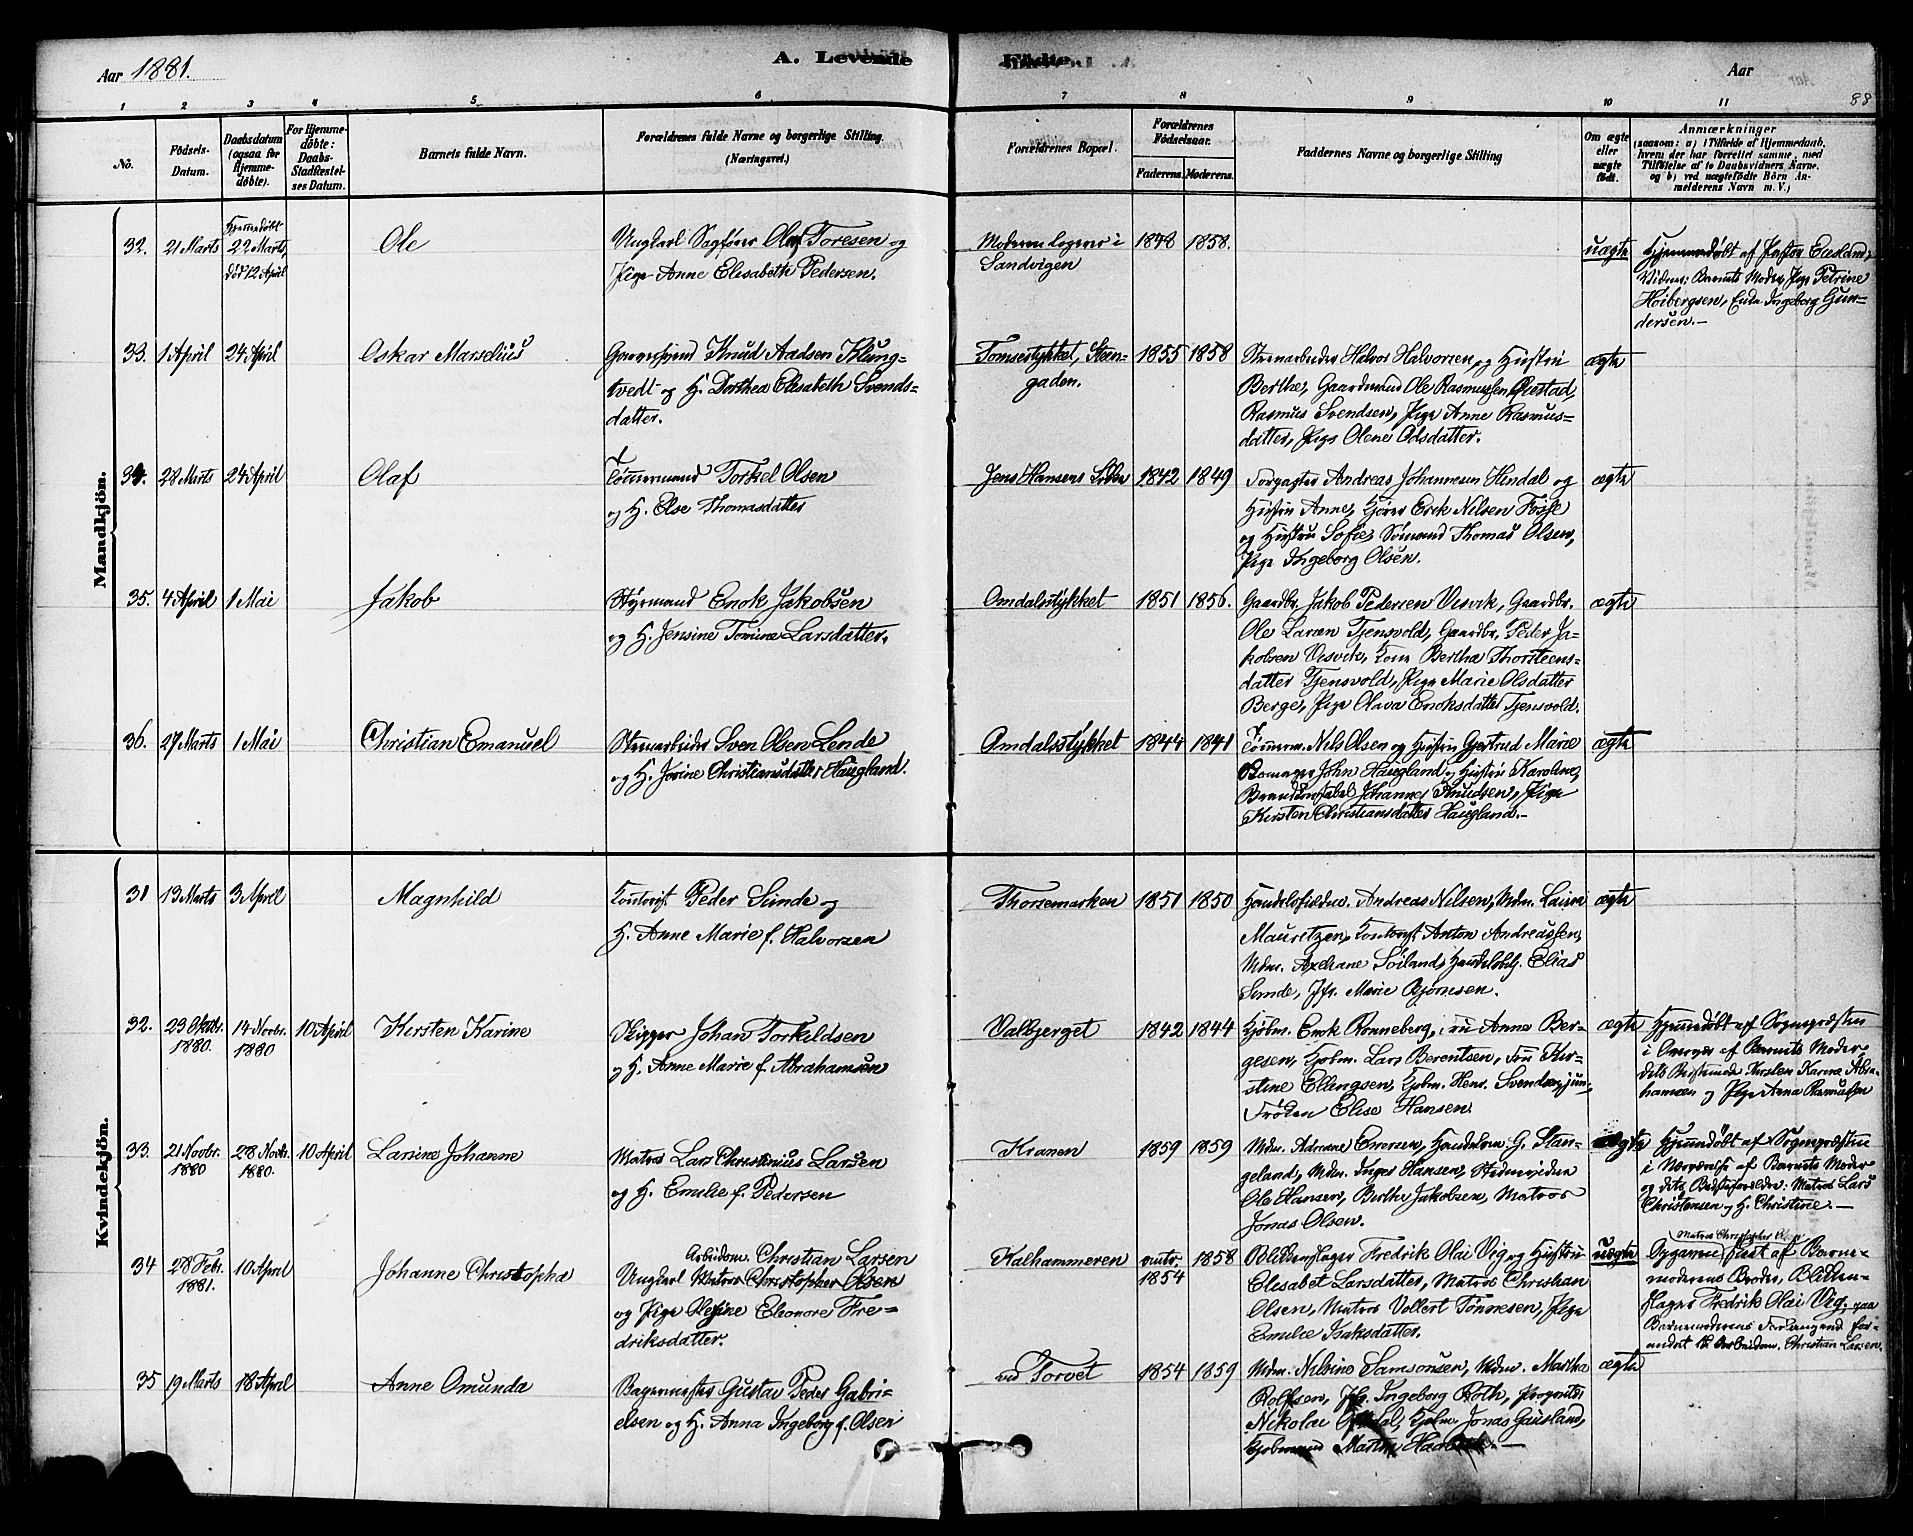 Aar 1881.
A. Levende
Fødte.
Aar
88
1 2 3 4 5 6 7 8 9 10 11
No.
Fødsels-
Datum.
Daabsdatum
(ogsaa for
Hjemme-
døbte).
For Hjemme-
døbte:
Daabs-
Stadfæstel-
ses Datum.
Barnets fulde Navn.
Forældrenes fulde Navne og borgerlige Stilling.
(Næringsvei.)
Forældrenes Bopæl.
Forældrenes
Fødselsaar.
Faderens. Moderens.
Faddernes Navne og borgerlige Stilling
Om ægte
eller
uægte
født.
Anmærkninger
(saasom: a) i Tilfælde af Hjemmedaab,
hvem der har forrettet samme, med
Tilføielse af to Daabsvidners Navne.
og b) ved uægtefødte Børn An-
melderens Navn m. V.)
Mandkjön.
32. 21 Marts
Hjemmedøbt
22 Marts,
død 12 April
Ole
Ungkarl Sagfører Olaf Toresen og
Pige Anne Elisabeth Pedersen.
Moderen logerer i
Sandvigen
1848 1858.
uægte
Hjemmedøbt af Pastor
Vidner: Barnets Moder, Pige Petrine
Hoibergsen, Enke Ingeborg Gun-
dersen.-
33. 1 April 24 April
Oskar Marselius
Garversvend Knud Aadsen Klung-
tvedt og H. Dorthea Elisabeth Svends-
datter.
Tomsestykket, Steen-
gaden.
1855 1858
Stenarbeider Halvor Halvorsen, og Hustru
Berthe, Gaardmand Ole Rasmussen Ørestad,
Rasmus Svendsen, Pige Anne Rasmus-
datter, Pige Olene Odsdatter.
ægte
34. 28 Marts 24 April
Olaf
Tømmermand Torkel Olsen
og H. Else Thomasdatter
Jens Hansens Liden
1842 1849
Torgagter Andreas Johannesen Hendal og
Hustru Anne, Kjører Erik Nilsen Fosse
og Hustru Sofie, Sømand Thomas Olsen,
Pige Ingeborg Olsen.
ægte
35. 4 April 1 Mai
Jakob
Styrmand Enok Jakobsen
og H. Jensine Tomine Larsdatter.
Omdalsstykket
1851 1856.
Gaardbr. Jakob Pedersen Visvik, Gaardbr.
Ole Larsen Tjensvold, Gaardbr. Peder Ja-
kobsen Visvik, Kone Bertha Thorsteens-
datter Tjensvold, Pige Marie Olsdatter
Berge, Pige Olava Enoksdatter Tjensvold.
ægte
36. 27 Marts 1 Mai
Christian Emanuel
Stenarbeider Sven Olsen Lende
og H. Jorine Christiansdatter Haugland.
Omdalsstykket
1844 1841
Tømmerm. Nils Olsen og Hustru Gjertrud Marie
John Haugland og Hustru Karoline,
Brandkonstabel Johannes Knudsen, Pige
Kirsten Christiansdatter Haugland.-
ægte
Kvindekjön.
31 13 Marts 3 April
Magnhild
Kontorist Peder Sunde og
H. Anne Marie f. Halvorsen
Thorsemarken
1851 1850
Andreas Nilsen, Mdm. Laura
Mauretzen, Kontorist Anton Andreassen,
Mdm. Axeliane Soiland, Handelsbtj. Elias
Sunde, Jfr. Marie Bjørnsen.
ægte
32. 23 Oktbr. 14 Novbr. 10 April
1880. 1880
Kirsten Karine
Skipper Johan Torkildsen
og H. Anne Marie f. Abrahamsen
Valbjerget
1842 1844
Kjøbm. Erik Rønneberg, Fru Anna Ber-
gesen, Kjøbm. Lars Berentsen, Fru Kir-
stine Ellingsen, Kjøbm. Hens. Svendsen jun,
Frøken Elise Hansen.
ægte
Hjemmedøbt af Sognepræsten
i Overvær af Barnets Moder,
dets Bestemoder Kirsten Karine Abra-
hamsen og Pige Anna Rasmussen
33. 21 Novbr. 28 Novbr. 10 April
1880 1880.
Larine Johanne
Matros Lars Christinius Larsen
og H. Emilie f. Pedersen
Kranen
1859 1859
Mdm. Adriane Eversen, Handelsm. G. Stan-
geland, Mdm. Inger Hansen, Stenarbeider
Ole Hansen, Berthe Jakobsen, Matros
Jonas Olsen.
ægte
Hjemmedøbt af Sognepræsten
i Nærværelse af Barnets Moder
og dets Bedsteforældre: Matros Lars
Christensen og H. Christine.-
34 28 Febr. 10 April
1881.
Johanne Christopha
Arbeidsm. Christian Larsen
Ungkarl Matros Christopher Olsen
og Pige Olesine Eleonore Fre-
driksdatter.
Kalhammeren
1854
1858
Blikkenslager Fredrik Olai Vig og Hustru
Elisabet Larsdatter, Matros Christian
Olsen, Matros Vollert Tönnesen, Pige
Emilie Isaksdatter.
uægte
Matros Christopher Olsen
Opgivne fast af Barne-
moderens Broder, Blikken-
slager Fredrik Olai Vig. paa
Barnemoderens Forlangend for-
andret til Arbeidsm. Christian Larsen.
35 19 Marts 18 April
Anne Omunda
Bagermester Gustav Peder Gabri-
elsen og H. Anna Ingeborg f. Olsen
ved Torvet
1854 1859
Mdm. Nilsine Samsonsen, Mdm. Martha
Rolfsen, Jfr. Ingeborg Roth,
Nikolai Kjøbm. Jonas Gausland,
Kjøbmand Martin
ægte